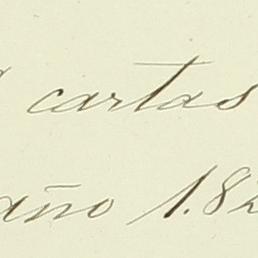 cartas
año 1.82